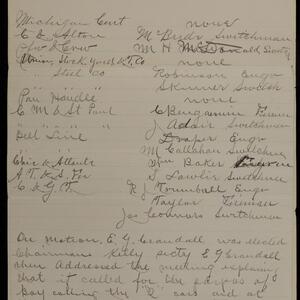 Michigan Cent none
C & Alton Mc Bride Switchman
Chi & Erie M H McDonald Switch
Union Stock Yards & T. Co none
Steel Co Robinson Engr
" " " Skinner Switch
Pan Handle none
C M & St Paul C Benjamin Fireman
" " " J Adair Switchman
Belt Line Draper Engr
" " M Callahan Switchman
" " Wm Baker Fireman
Chic & Atlantic S Lawlir Switchman
A T & S. Fe R J Trumball Engr
C & G T. Taylor Fireman
Jas Connors Switchman
On motion, E. G. Crandall was elected
Chairman Kelly Secty E G Crandall
then addressed the meeting explaining
that it called for the purpose of
boycotting the "Q" cars and at